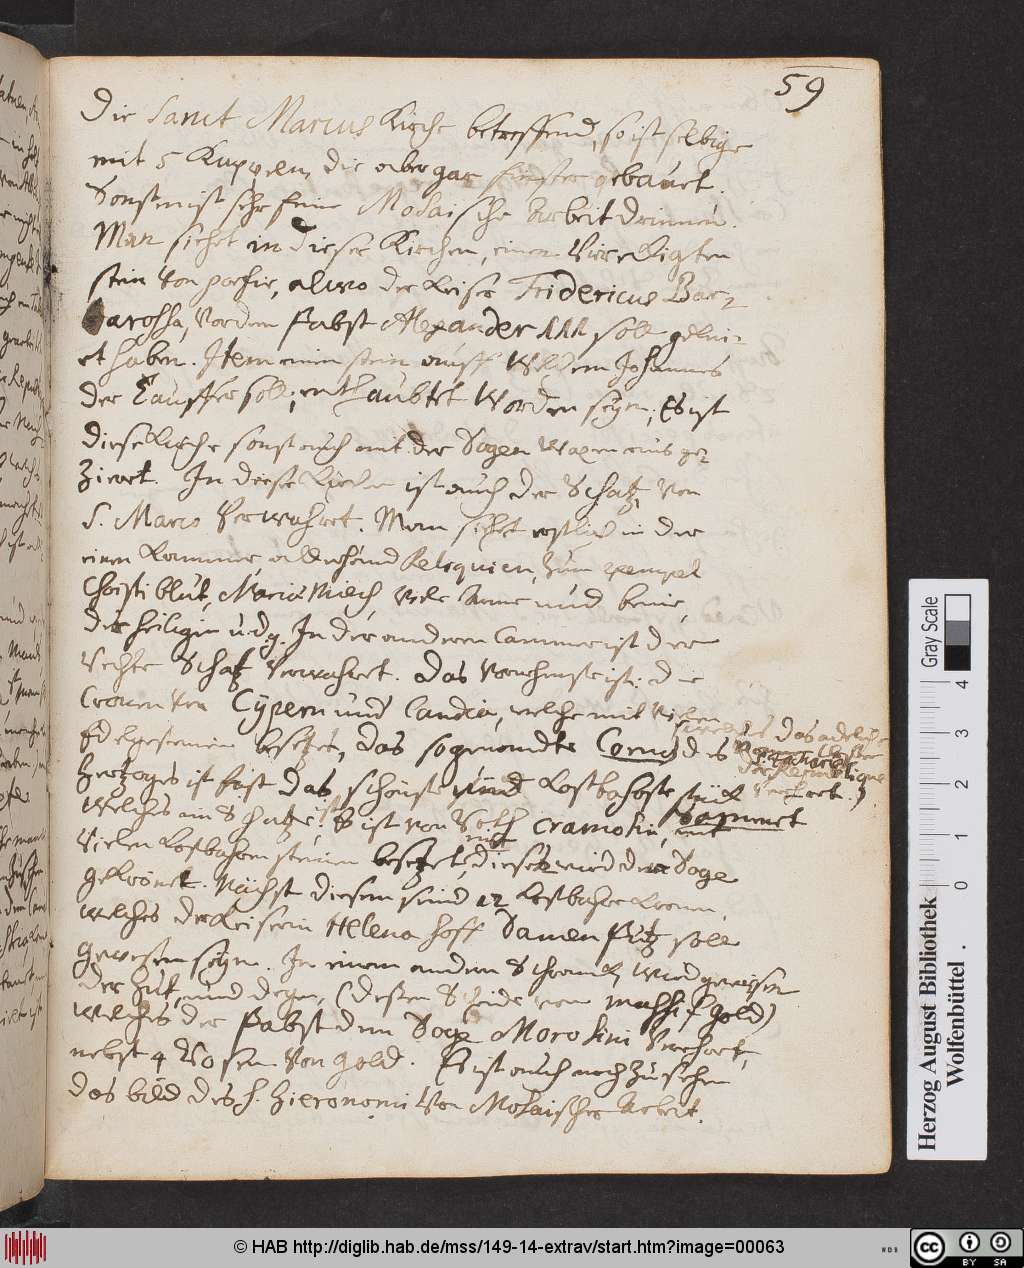 59
Die Sanct Marcus Kirche betreffend, so ist selbige
mit 5 Kuppeln, die aber gar finster gebauet.
Sonst ist sehr feine Mosaische Arbeit drinnen.
Man siehet in dieser Kirchen, einen Vireckigten
stein von porfir, alwo der Keiser Fridericus Bar-
barossa, vor dem Pabst Alexander III soll gekni-
et haben. Item einen stein auff welchem Johannes
der Täuffer soll enthaubtet worden seyn, Es ist
diese Kirche sonst auch mit der Dogen Wapen ge-
Zieret. In dieser Kirchen ist auch der Schatz von
S. Marco Verwahret. Man sihet erstlich in der
einen Kammer allerhand Reliquien, zum exempel
Christi blut, Mariae Milch, viele Arme und beine,
der heiligen u. d. g. In der anderen Cammer ist der
rechte Schatz Verwahret. Das Vornehmste ist die
Cronen von Cypern und Candia, welche mit vielen
Edelgesteinen besetzet, das sogenandte Corno des
Hertzoges ist fast das schönste und Kostbahrste stück
welches im Schatze ist. Es ist von Cramosin Sammet mit
Vielen Kostbahren steinen besetzet, mit diesen wird der Doge
gekrönet. Nächst diesem sind 12 Kostbahre Kronen,
welches der Keiserin Helena Hoff Damen Putz soll
gewesen seyn. In einem andern Schranck wird gewisen
der Hut, und degen, (dessen Scheide von massif gold)
welches der Pabst dem Doge Morosini Verehret,
nebst 4 Rosen von gold. Es ist auch noch zu sehen
das bild des H. Hieronomi von Mosaischer Arbeit.
Herzog August Bibliothek
Wolfenbüttel
Gray Scale
0 1 2 3 4
© HAB http://diglib.hab.de/mss/149-14-extrav/start.htm?image=00063
WDB
cc BY SA